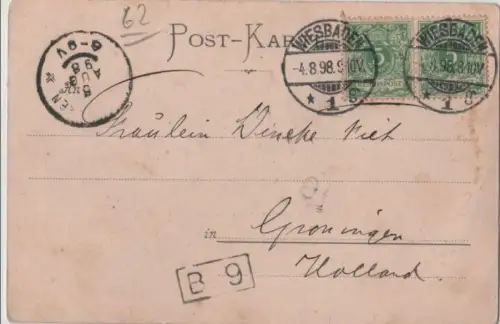 62
POST-KAR
WIESBADEN
-4.8.98.8-10V.
* 1 g.
WIESBADEN
.8.98.8-10V.
1 g.
5
AUG
98
6-9V
Fräulein Dineke Viet
in Groningen
Holland.
B 9